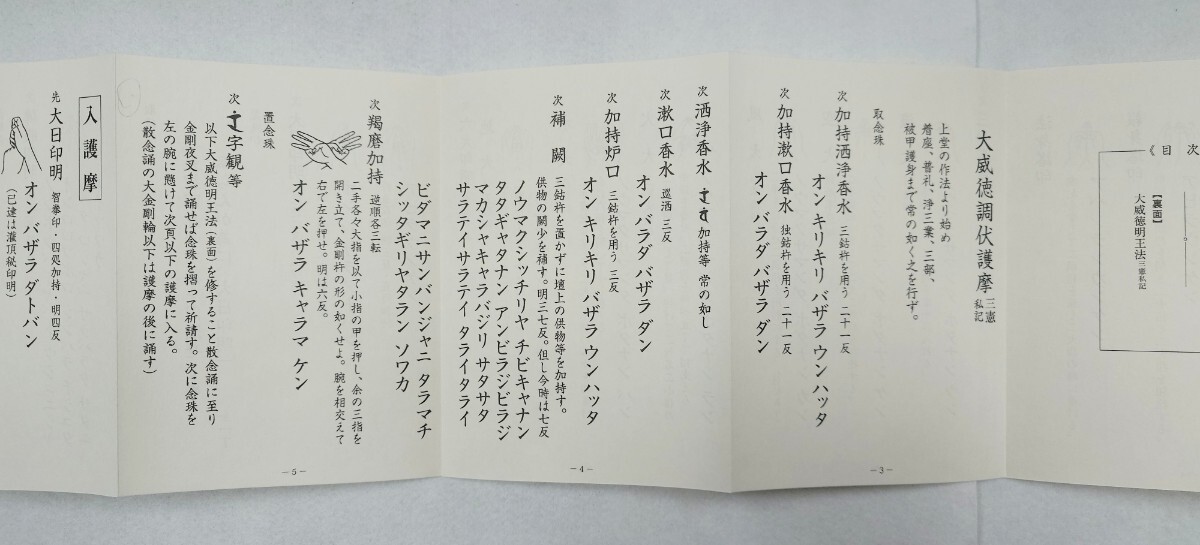 《目次
【裏面】
大威徳明王法 三憲私記
大威徳調伏護摩 三憲私記
上堂の作法より始め
着座、普礼、浄三業、三部、
被甲護身まで常の如く之を行ず。
取念珠
次 加持洒浄香水 三鈷杵を用う 二十一反
オン キリキリ バザラ ウンハッタ
次 加持漱口香水 独鈷杵を用う 二十一反
オン バラダ バザラ ダン
－3－
次 洒浄香水 加持等 常の如し
次 漱口香水 巡洒 三反
オン バラダ バザラ ダン
次 加持炉口 三鈷杵を用う 三反
オン キリキリ バザラ ウンハッタ
次 補闕 三鈷杵を置かずに壇上の供物等を加持す。
供物の闕少を補す。明三七反。但し今時は七反
ノウマクシッチリヤ チビキャナン
タタギャタナン アンビラジビラジ
マカシャキャラバジリ サタサタ
サラテイサラテイ タライタライ
－4－
ビダマニサンバンジャニ タラマチ
シッタギリヤタラン ソワカ
次 羯磨加持 逆順各三転
二手各々大指を以て小指の甲を押し、余の三指を
開き立て、金剛杵の形の如くせよ。腕を相交えて
右で左を押せ。明は六反。
オン バザラ キャラマ ケン
置念珠
次 字観等
以下大威徳明王法（裏面）を修すること散念誦に至り
金剛夜叉まで誦せば念珠を摺って祈請す。次に念珠を
左の腕に懸けて次頁以下の護摩に入る。
（散念誦の大金剛輪以下は護摩の後に誦す）
－5－
入護摩
先 大日印明 智拳印・四処加持・明四反
オン バザラ ダトバン
（已達は灌頂秘印明）